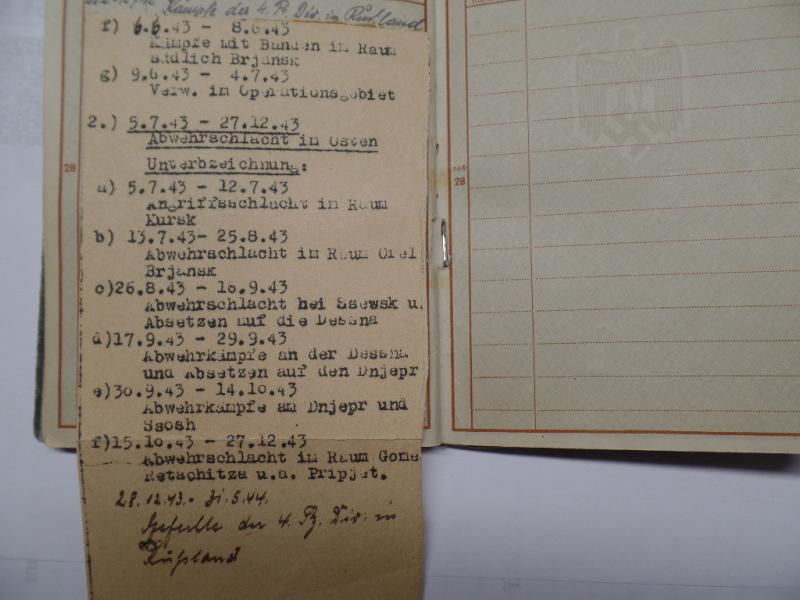 Kämpfe der 4. Pz. Div. in Rußland
f) 6.6.43 - 8.6.43
Kämpfe mit Banden im Raum
südlich Brjansk
g) 9.6.43 - 4.7.43
Verw. im Operationsgebiet
2.) 5.7.43 - 27.12.43
Abwehrschlacht im Osten
Unterbzeichnung:
a) 5.7.43 - 12.7.43
Angriffsschlacht im Raum
Kursk
b) 13.7.43- 25.8.43
Abwehrschlacht im Raum Orel
Brjansk
c)26.8.43 - 16.9.43
Abwehrschlacht bei Ssewsk u.
Absetzen auf die Dessna
d)17.9.43 - 29.9.43
Abwehrkämpfe an der Dessna
und Absetzen auf den Dnjepr
e)30.9.43 - 14.10.43
Abwehrkämpfe am Dnjepr und
Ssosh
f)15.10.43 - 27.12.43
Abwehrschlacht im Raum Gome
Retschitza u.a. Pripjet.
28.12.43.- 31.5.44.
Gefechte der 4. Pz. Div. in
Rußland
28
28